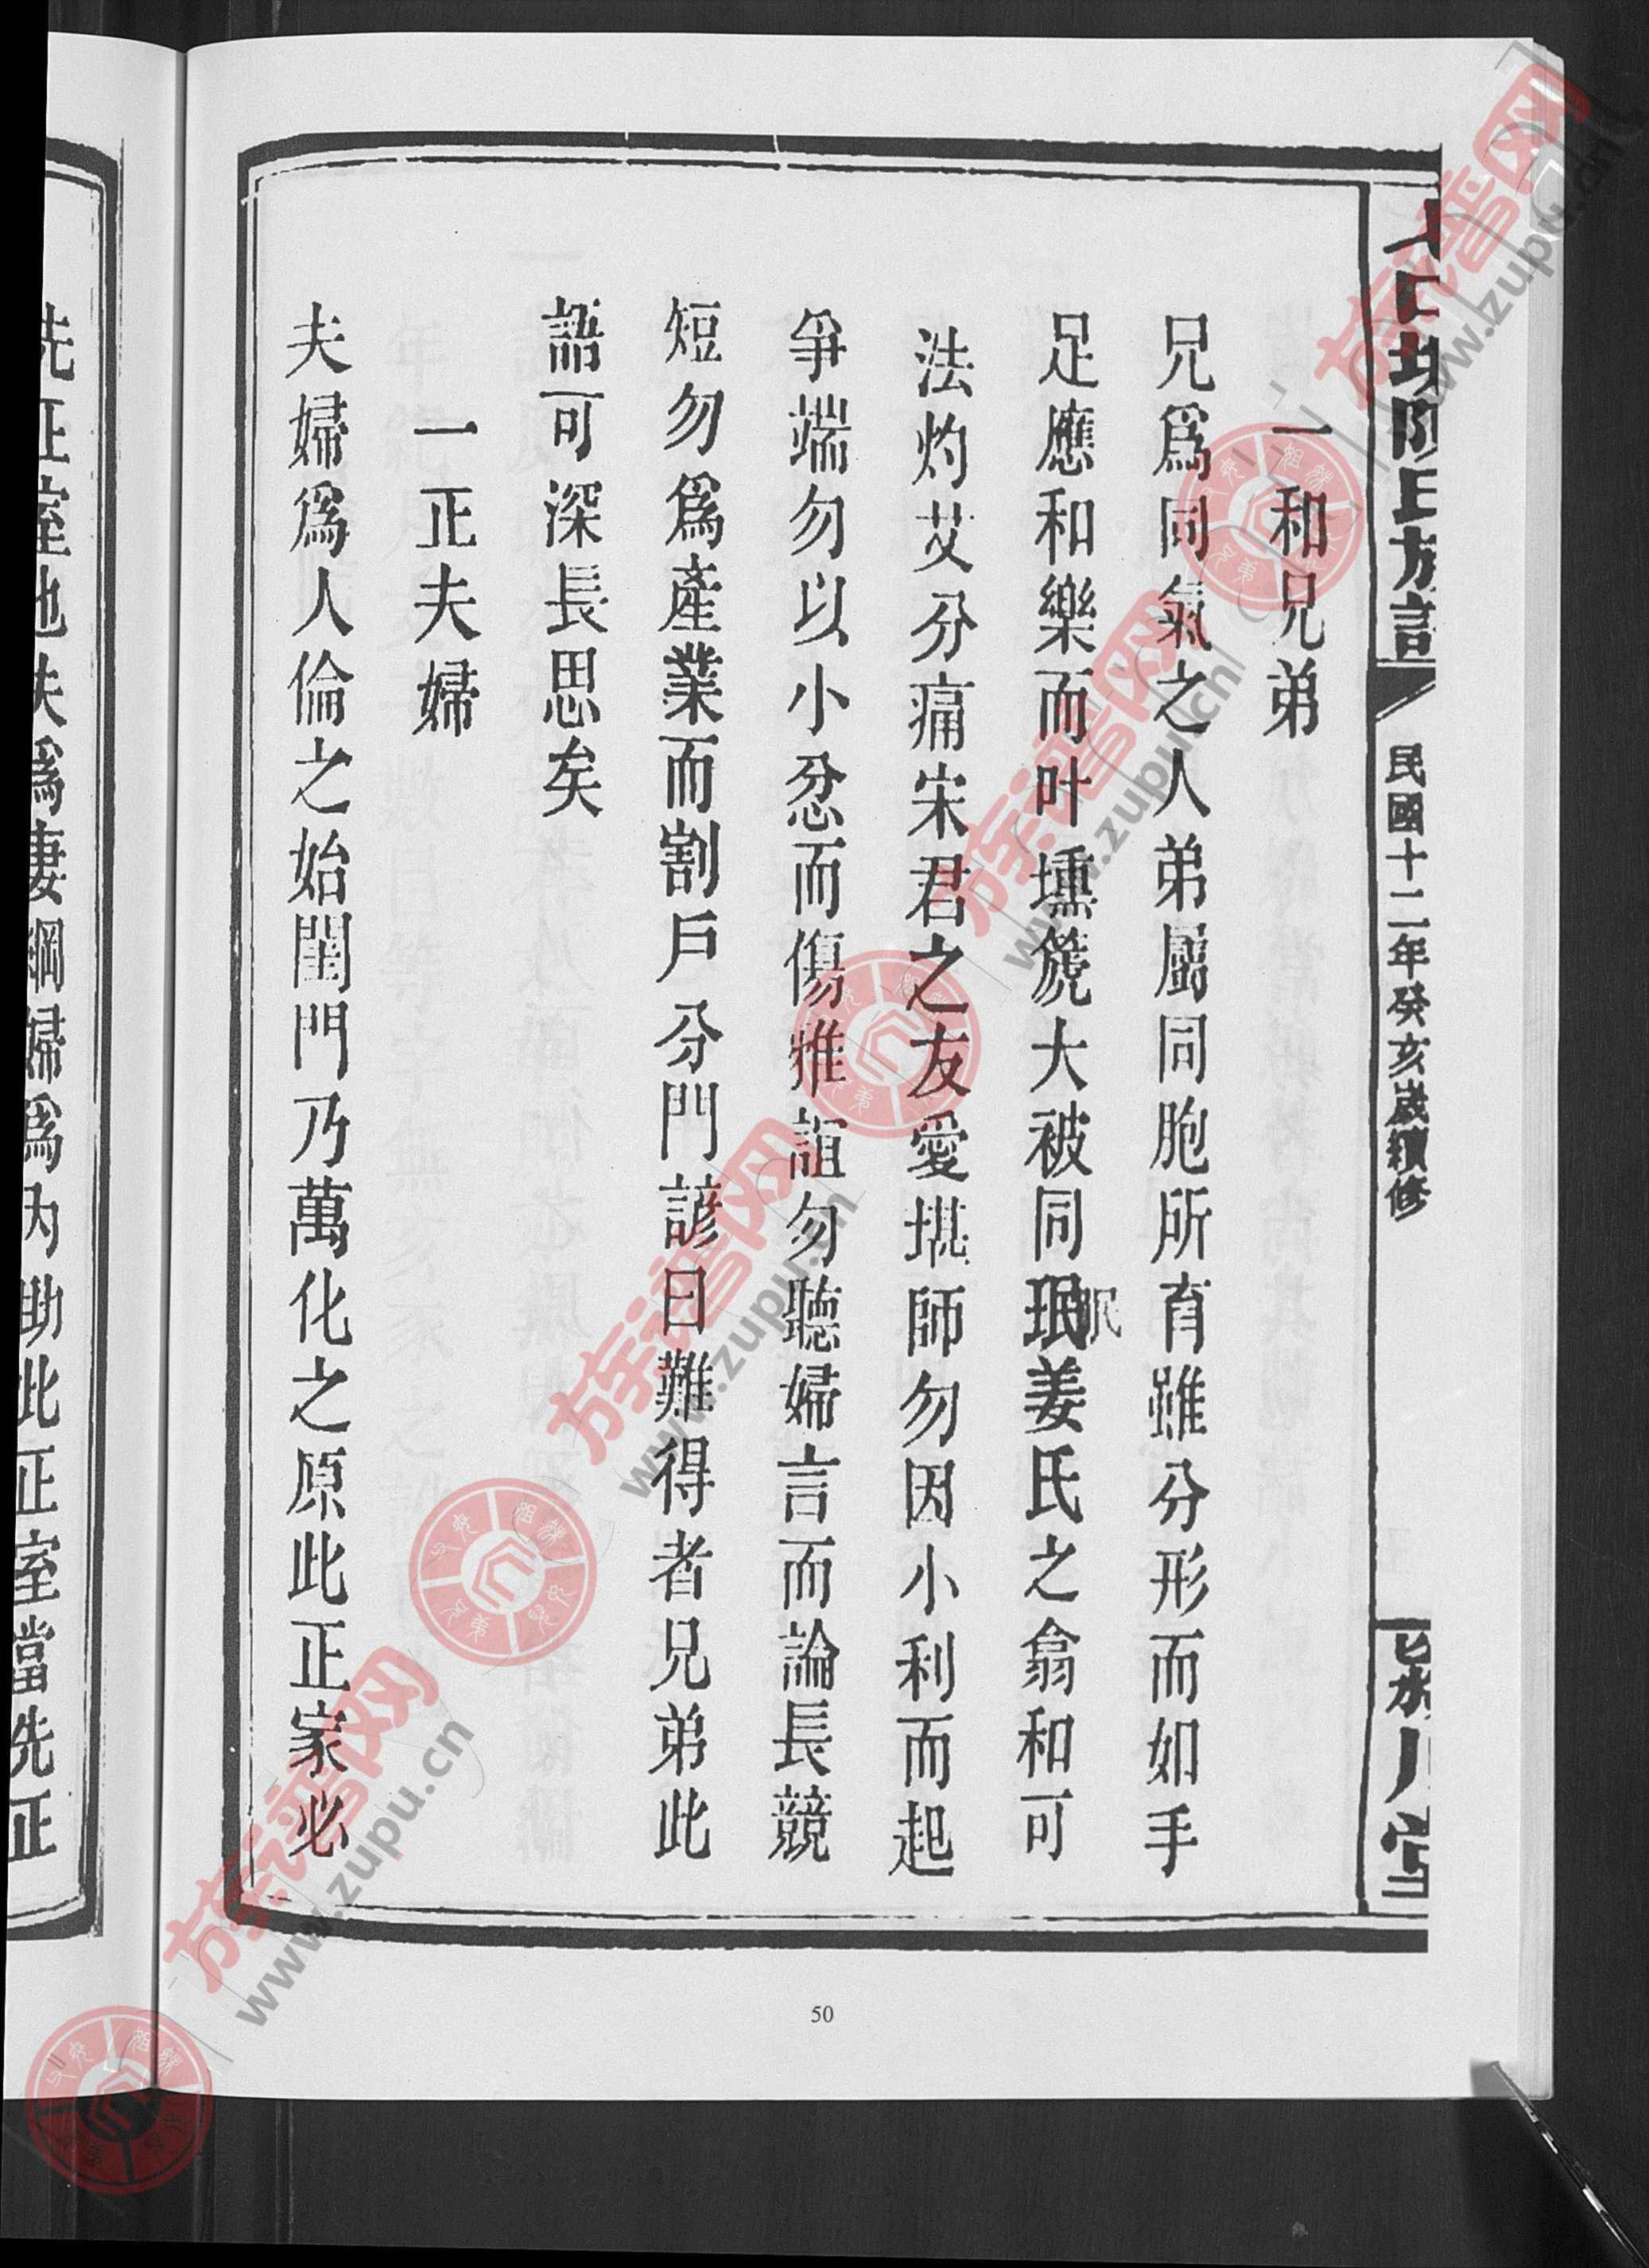 民國十二年癸亥歲續修
一和兄弟
兄爲同氣之人弟屬同胞所育雖分形而如手
足應和樂而叶壎篪大被同珉眠姜氏之翕和可
法灼艾分痛宋君之友愛堪師勿因小利而起
爭端勿以小忿而傷雅誼勿聽婦言而論長競
短勿爲產業而割戶分門諺曰難得者兄弟此
語可深長思矣
一正夫婦
夫婦爲人倫之始閨門乃萬化之原此正家必
先正室也夫爲妻綱婦爲內助此正室當先正
50
族谱网
www.zupu.cn
族谱网
www.zupu.cn
族谱网
www.zupu.cn
族谱网
www.zupu.cn